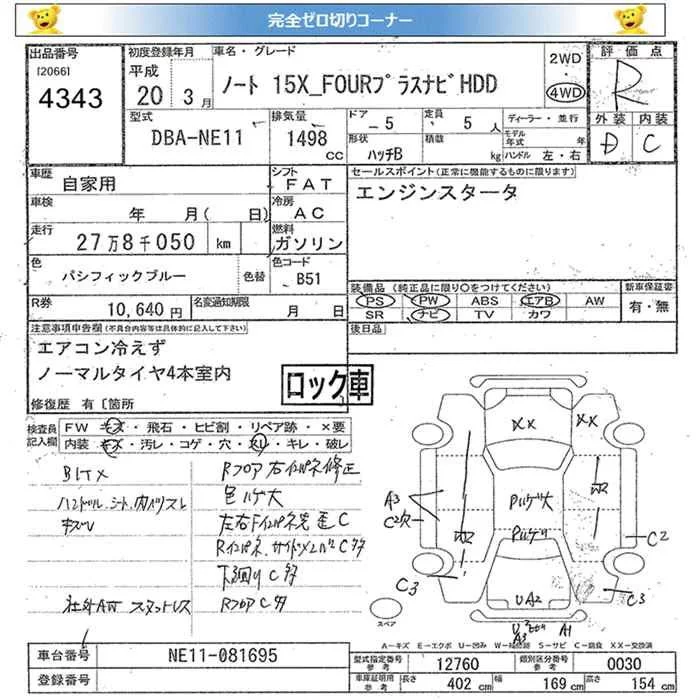 完全ゼロ切りコーナー
出品番号 初度登録年月 車名・グレード 評価点
[2066] 平成 2WD
4343 20年 3月 ノート 15X_FOURプラスナビHDD 4WD R
型式 排気量 ドア 定員 ディーラー・並行 外装 内装
DBA-NE11 1498 cc 5 5人 モデル年式 年 D C
形状 ハッチB 積載 kg ハンドル 左・右
車歴 自家用 シフト FAT セールスポイント(正常に機能するものに限ります)
車検 年 月( 日) 冷房 AC エンジンスタータ
走行 27万8千050 km 燃料 ガソリン
色 パシフィックブルー 色替 色コード B51
装備品(純正品に限り○をつけてください) 新車保証書
R券 10,640円 名変通知期限 月 日 PS PW ABS エアB AW 有・無
SR ナビ TV カワ
注意事項申告欄(不具合内容等は具体的に記入して下さい) 後日品
エアコン冷えず
ノーマルタイヤ4本室内
ロック車
修復歴 有〔箇所
検査員記入欄 FW キズ・飛石・ヒビ割・リペア跡・×要
内装 キズ・汚レ・コゲ・穴・スレ・キレ・破レ
Rフロア右インパネ修正
ハンドル、シート、内バリスレ
キズ
色ハゲ大
下回りC多
社外AW スタッドレス RフロアC多
XX XX
A3
C2
C3 C3
UA2
A3 A1
スペア
A－キズ E－エクボ U－凹み W－補修跡 S－サビ C－腐食 XX－交換済
車台番号 NE11-081695 型式指定番号 参考 12760 類別区分番号 参考 0030
登録番号 車庫証明用 参考 長さ 402 cm 幅 169 cm 高さ 154 cm